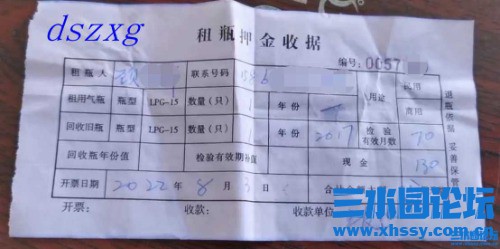 dszxg
租瓶押金收据
编号: 0057
租瓶人 联系号码 民用
租用气瓶 瓶型 LPG-15 数量(只) 1 年份 用途 商用
回收旧瓶 瓶型 LPG-15 数量(只) 1 年份 2017 检验有效月数 70
回收瓶年份值 检验有效期补值 现金 130
开票日期 2022 年 8 月 3
开票: 收款: 收款单位
退瓶依据 妥善保管
三水园论坛
www.xhssy.com